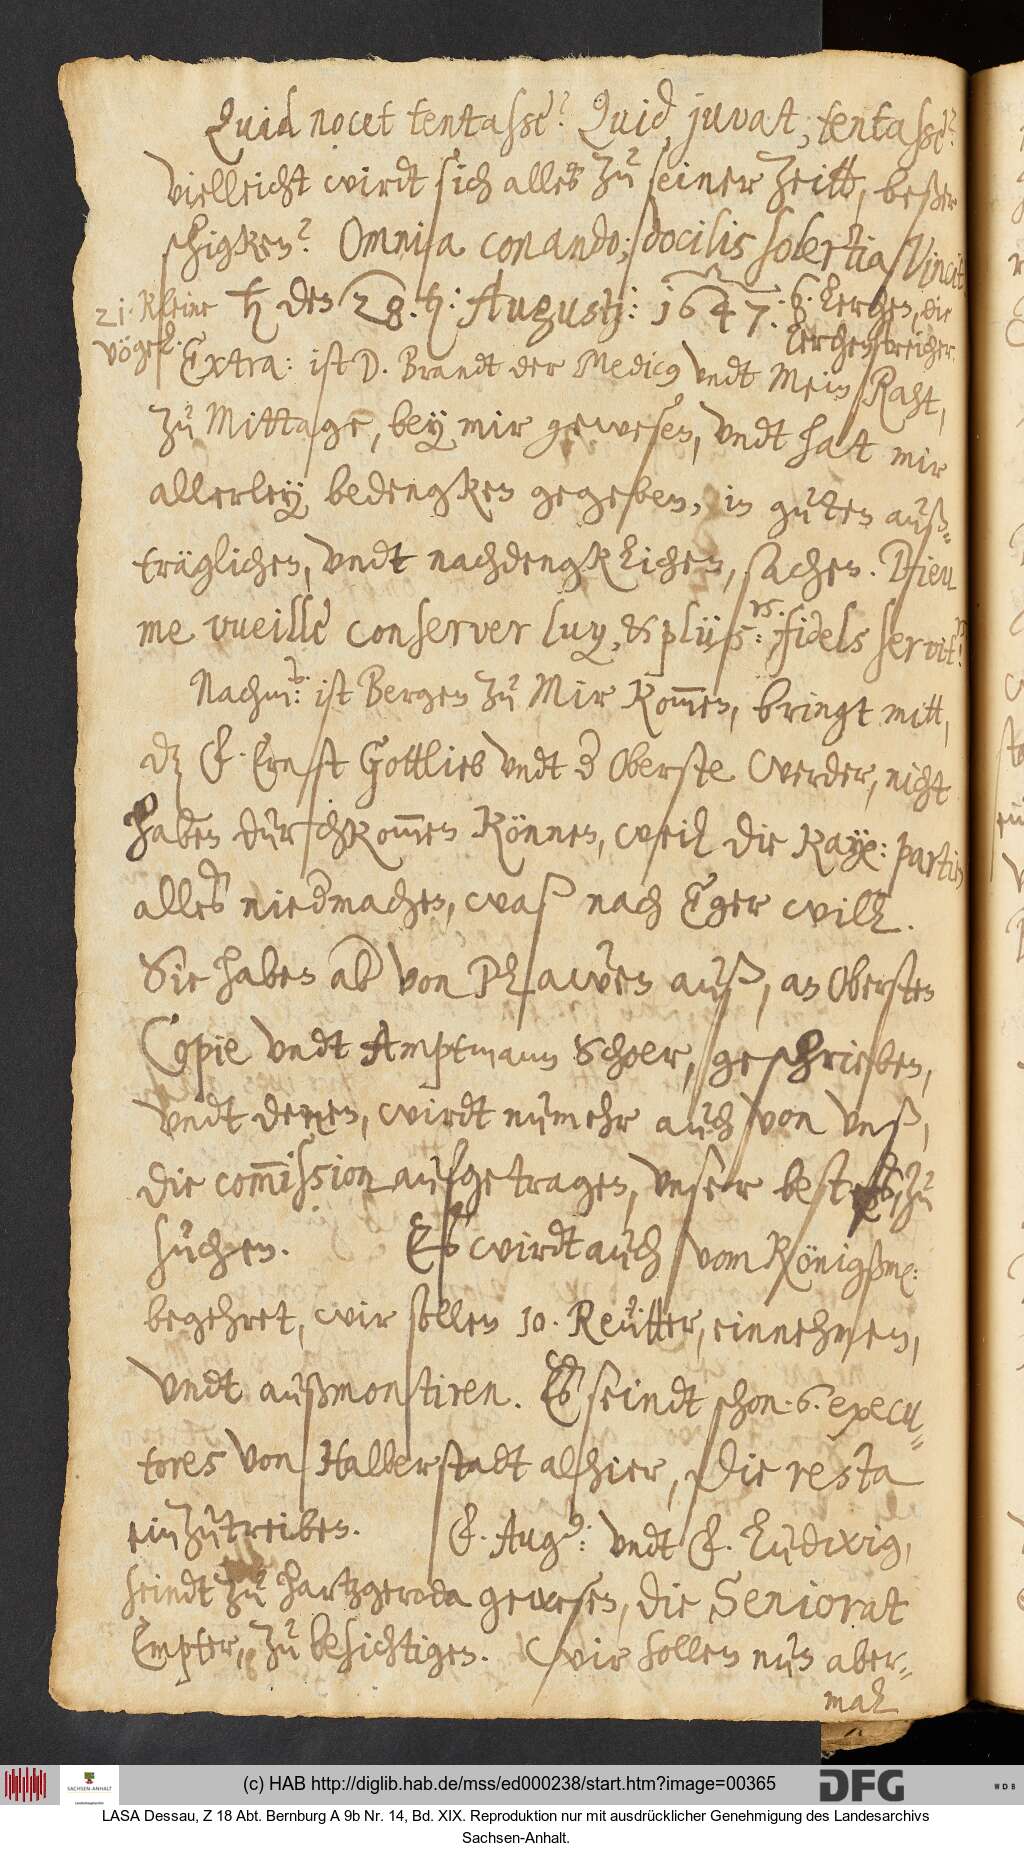 Quid nocet tentasse? Quid juvat, tentasse?
vielleicht wirdt sich alles zu seiner zeitt, beßer
schigken? Omnia conando; docilis solertia vincit
21. Kleine ♄ den 28. ♄: Augustj: 1647. 6. Lerchen, die
vögel. Lerchenstreicher.
Extra: ist D. Brandt der Medicus vndt Mein Raht,
zu Mittage, bey mir gewesen, vndt hatt mir
allerley bedengken gegeben, in guten auß-
träglichen, vndt nachdengklichen, sachen. Dieu
me vueille conserver luy, & plüs: rs. fidels servit:rs
Nachm:s: ist Bergen zu Mir kommen, bringt mitt,
dz F. Ernst Gottlieb vndt d Oberste Werder, nicht
haben durchkommen können, weil die Kay: partien
alles niedmachen, waß nach Eger will.
Sie haben ab von Plawen auß, an Obersten
Copie vndt Amptmann Schoer, geschrieben,
vndt denen, wirdt numehr auch von vnß,
die commission aufgetragen, vnser bestes, zu
suchen. Es wirdt auch vom Königßm:
begehret, wir sollen 10. Reütter, einnehmen,
vndt außmontiren. Es seindt schon 6. execu-
tores von Halberstadt alhier, die resta
einzutreiben. F. Aug: vndt F. Ludwig,
seindt zu hartzgeroda gewesen, die Seniorat
Empter, zu besichtigen. Wir sollen nun aber-
mal
(c) HAB http://diglib.hab.de/mss/ed000238/start.htm?image=00365
SACHSEN-ANHALT
DFG
WDB
LASA Dessau, Z 18 Abt. Bernburg A 9b Nr. 14, Bd. XIX. Reproduktion nur mit ausdrücklicher Genehmigung des Landesarchivs
Sachsen-Anhalt.